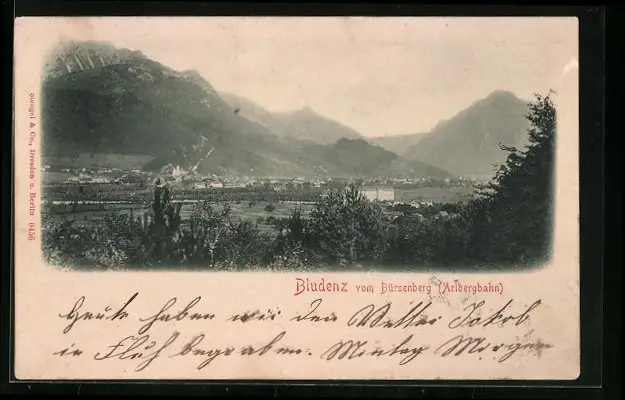 Bludenz vom Bürsenberg (Arlbergbahn)
Heute haben wir den Vetter Jakob
in Fluh begraben. Montag Morgen
& Co., Dresden u. Berlin 6456